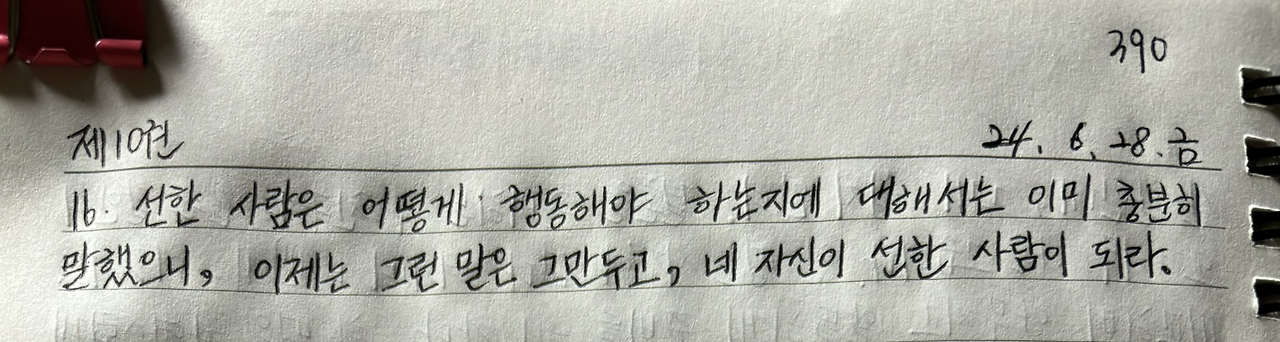 390
제10권
24. 6. 28. 금
16. 선한 사람은 어떻게 행동해야 하는지에 대해서는 이미 충분히
말했으니, 이제는 그런 말은 그만두고, 네 자신이 선한 사람이 되라.